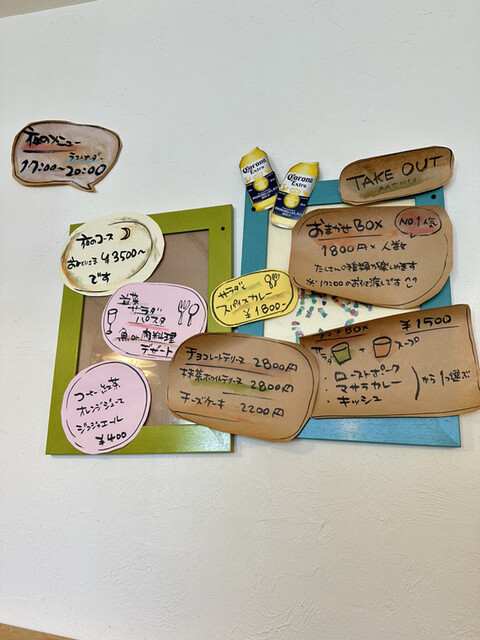 夜のメニュー
ラストオーダー
17:00~20:00
夜のコース
おひとりさま ¥3500~
です
前菜
サラダ
パスタ
魚 or 肉料理
デザート
コーヒー
オレンジジュース
ジンジャエール
¥400
Corona
Extra
Corona
Extra
サラダ
スパイスカレー
¥1800-
TAKE OUT
MENU
おまかせBOX
NO.1人気
1800円×人数
たくさんの種類が楽しめます
BOX
¥1500
サラダ
+
スープ
・ローストポーク
・マサラカレー
・キッシュ
から1つ選ぶ
チョコレートテリーヌ 2800円
抹茶ホワイトテリーヌ 2800円
チーズケーキ 2200円